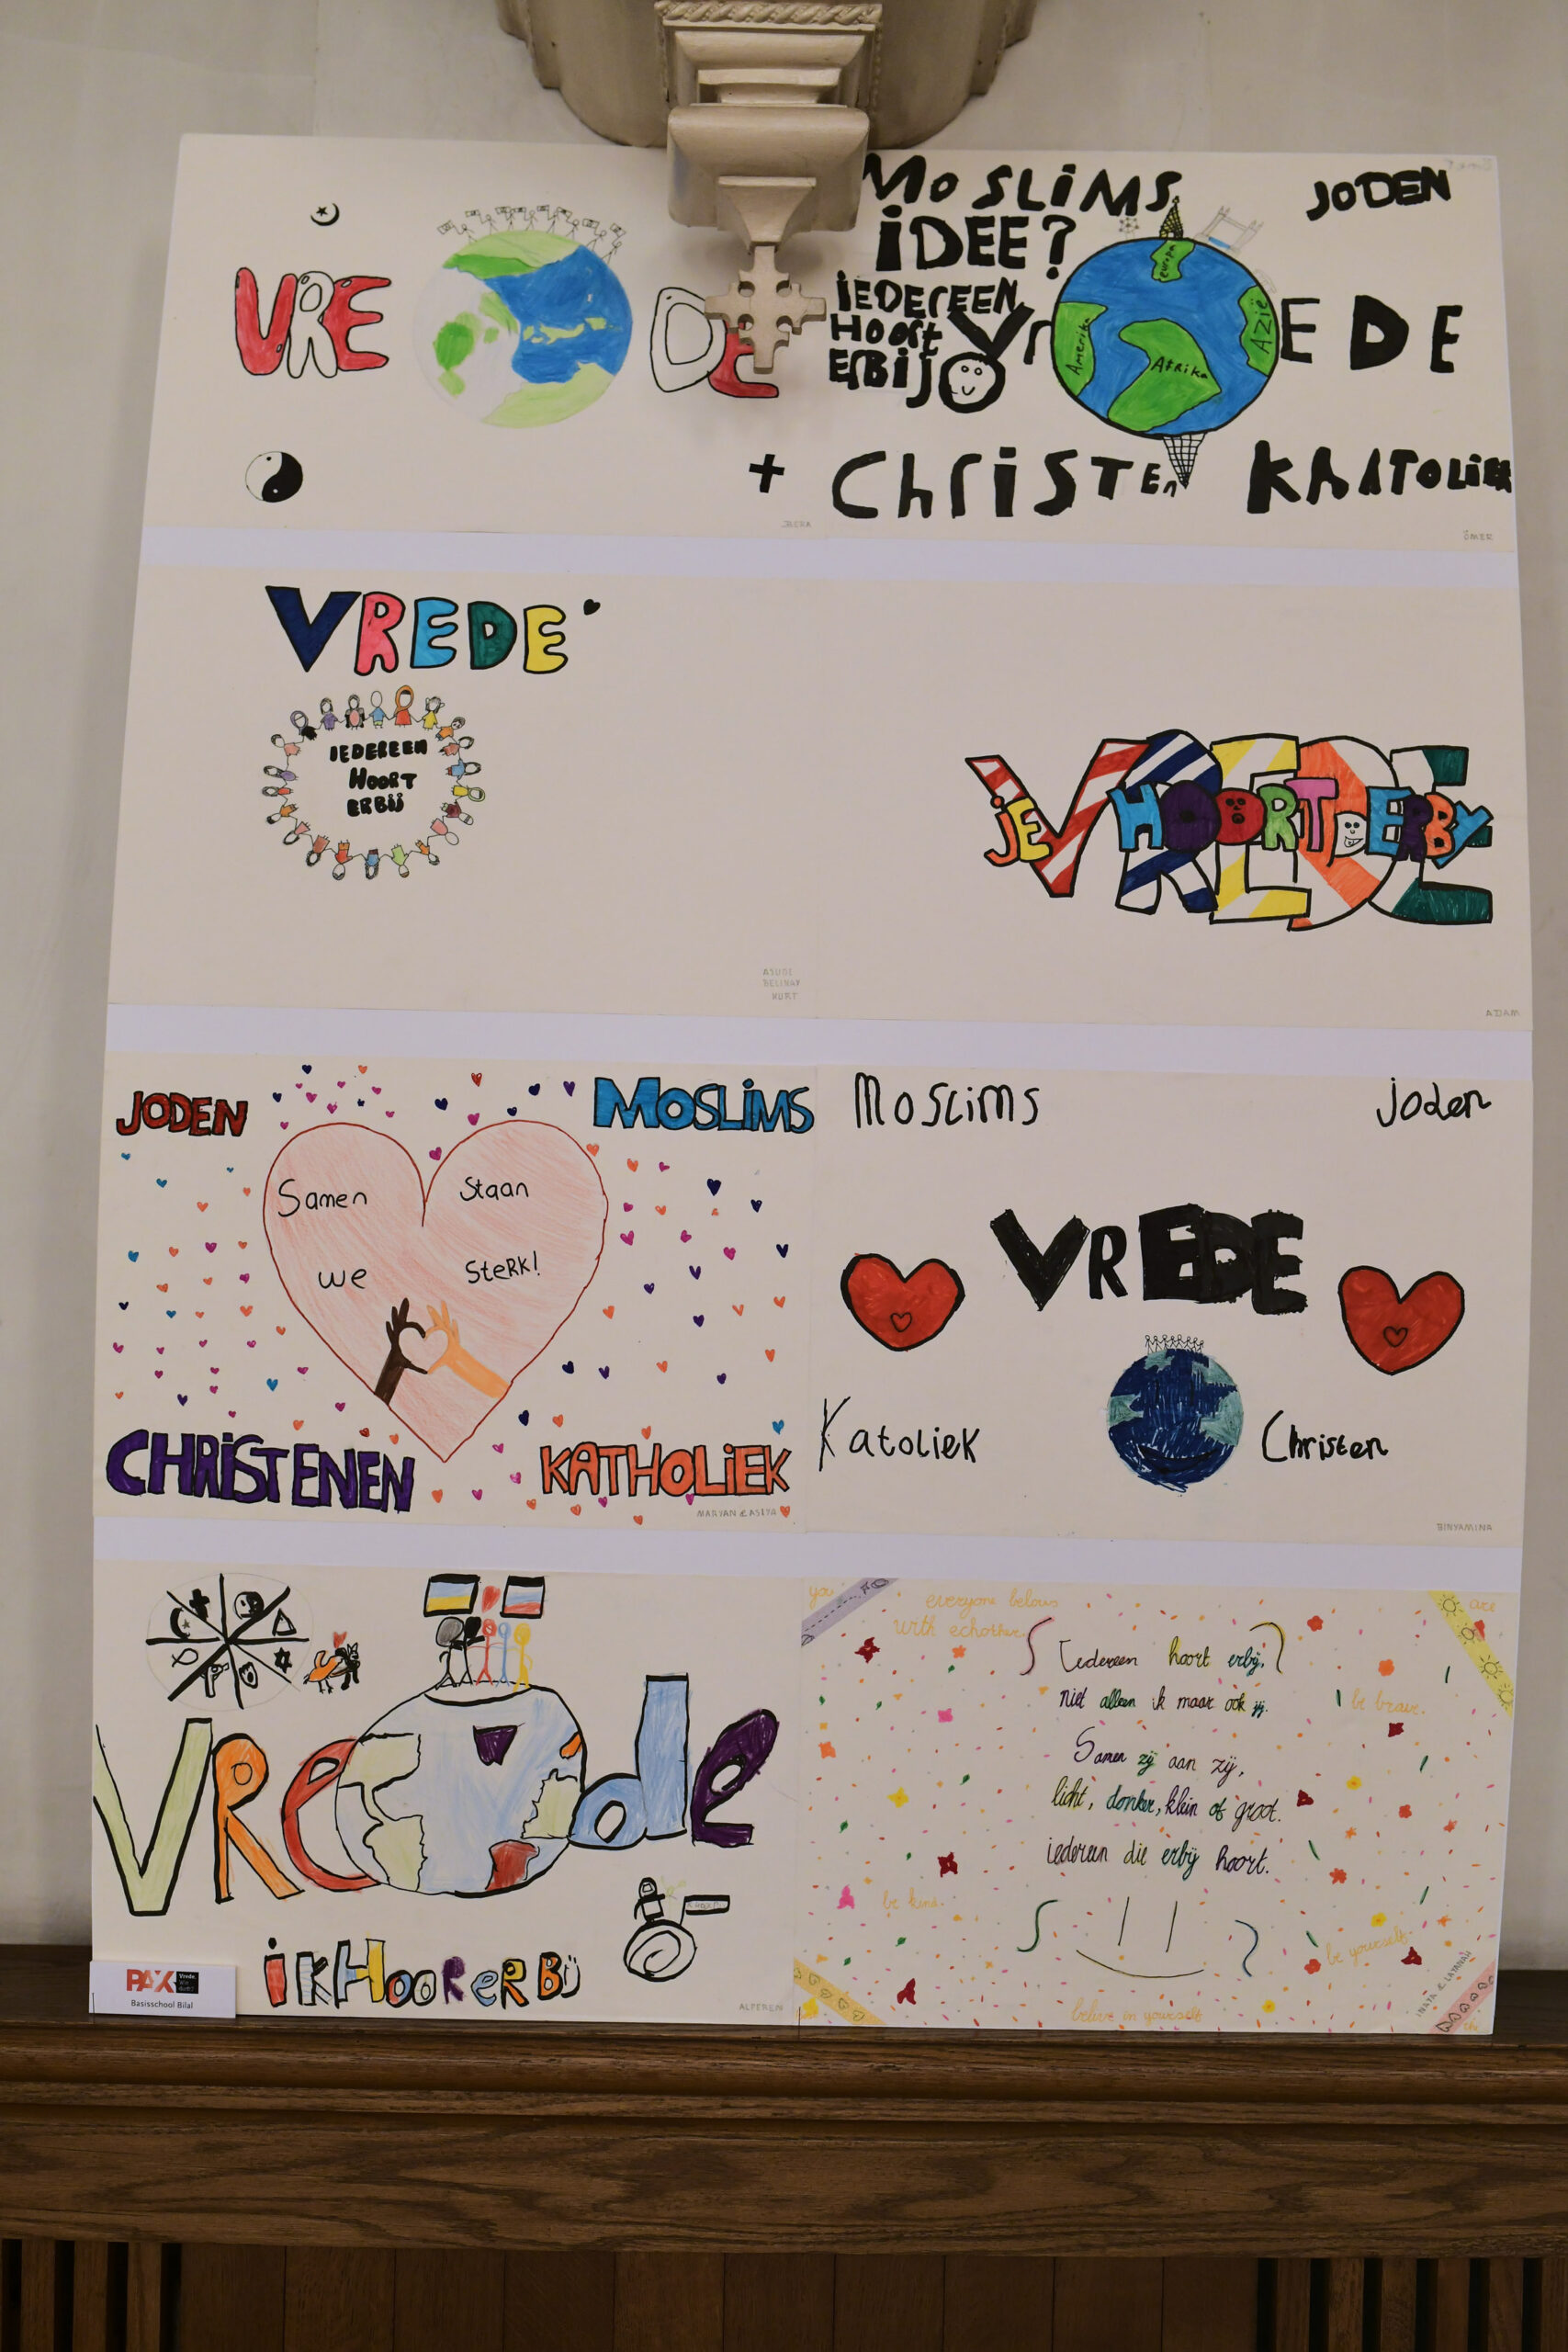 VRE DE
JRERA
MOSLiMS
iDEE?
iEDEREEN
HOort
ERBiJ
JODEN
Vr EDE
europa
Amerika
Afrika
AZië
ChriSTEn
KAATOLiEK
ÖMER
VREDE
IEDEREEN
HOORT
ERBIJ
BELINAY
KURT
VREDE
jE HOORT ERBY
ADAM
JODEN
MOSLiMS
Samen Staan
we SteRK!
CHRiSTENEN
KATHOLiEK
MARYAN & ASIYA
Moslims
joden
VREDE
Katoliek
Christen
BINYAMINA
VRede
iKHOORERBiJ
ALPEREN
PAX
Vrede.
Basisschool Bilal
you
are
everyone belons
with echother
Iedereen hoort erbij,
niet alleen ik maar ook jij.
be brave.
Samen zij aan zij,
licht, donker, klein of groot.
iedereen die erbij hoort.
be kind.
be yourself.
believe in yourself
INAYA & LAYANAH